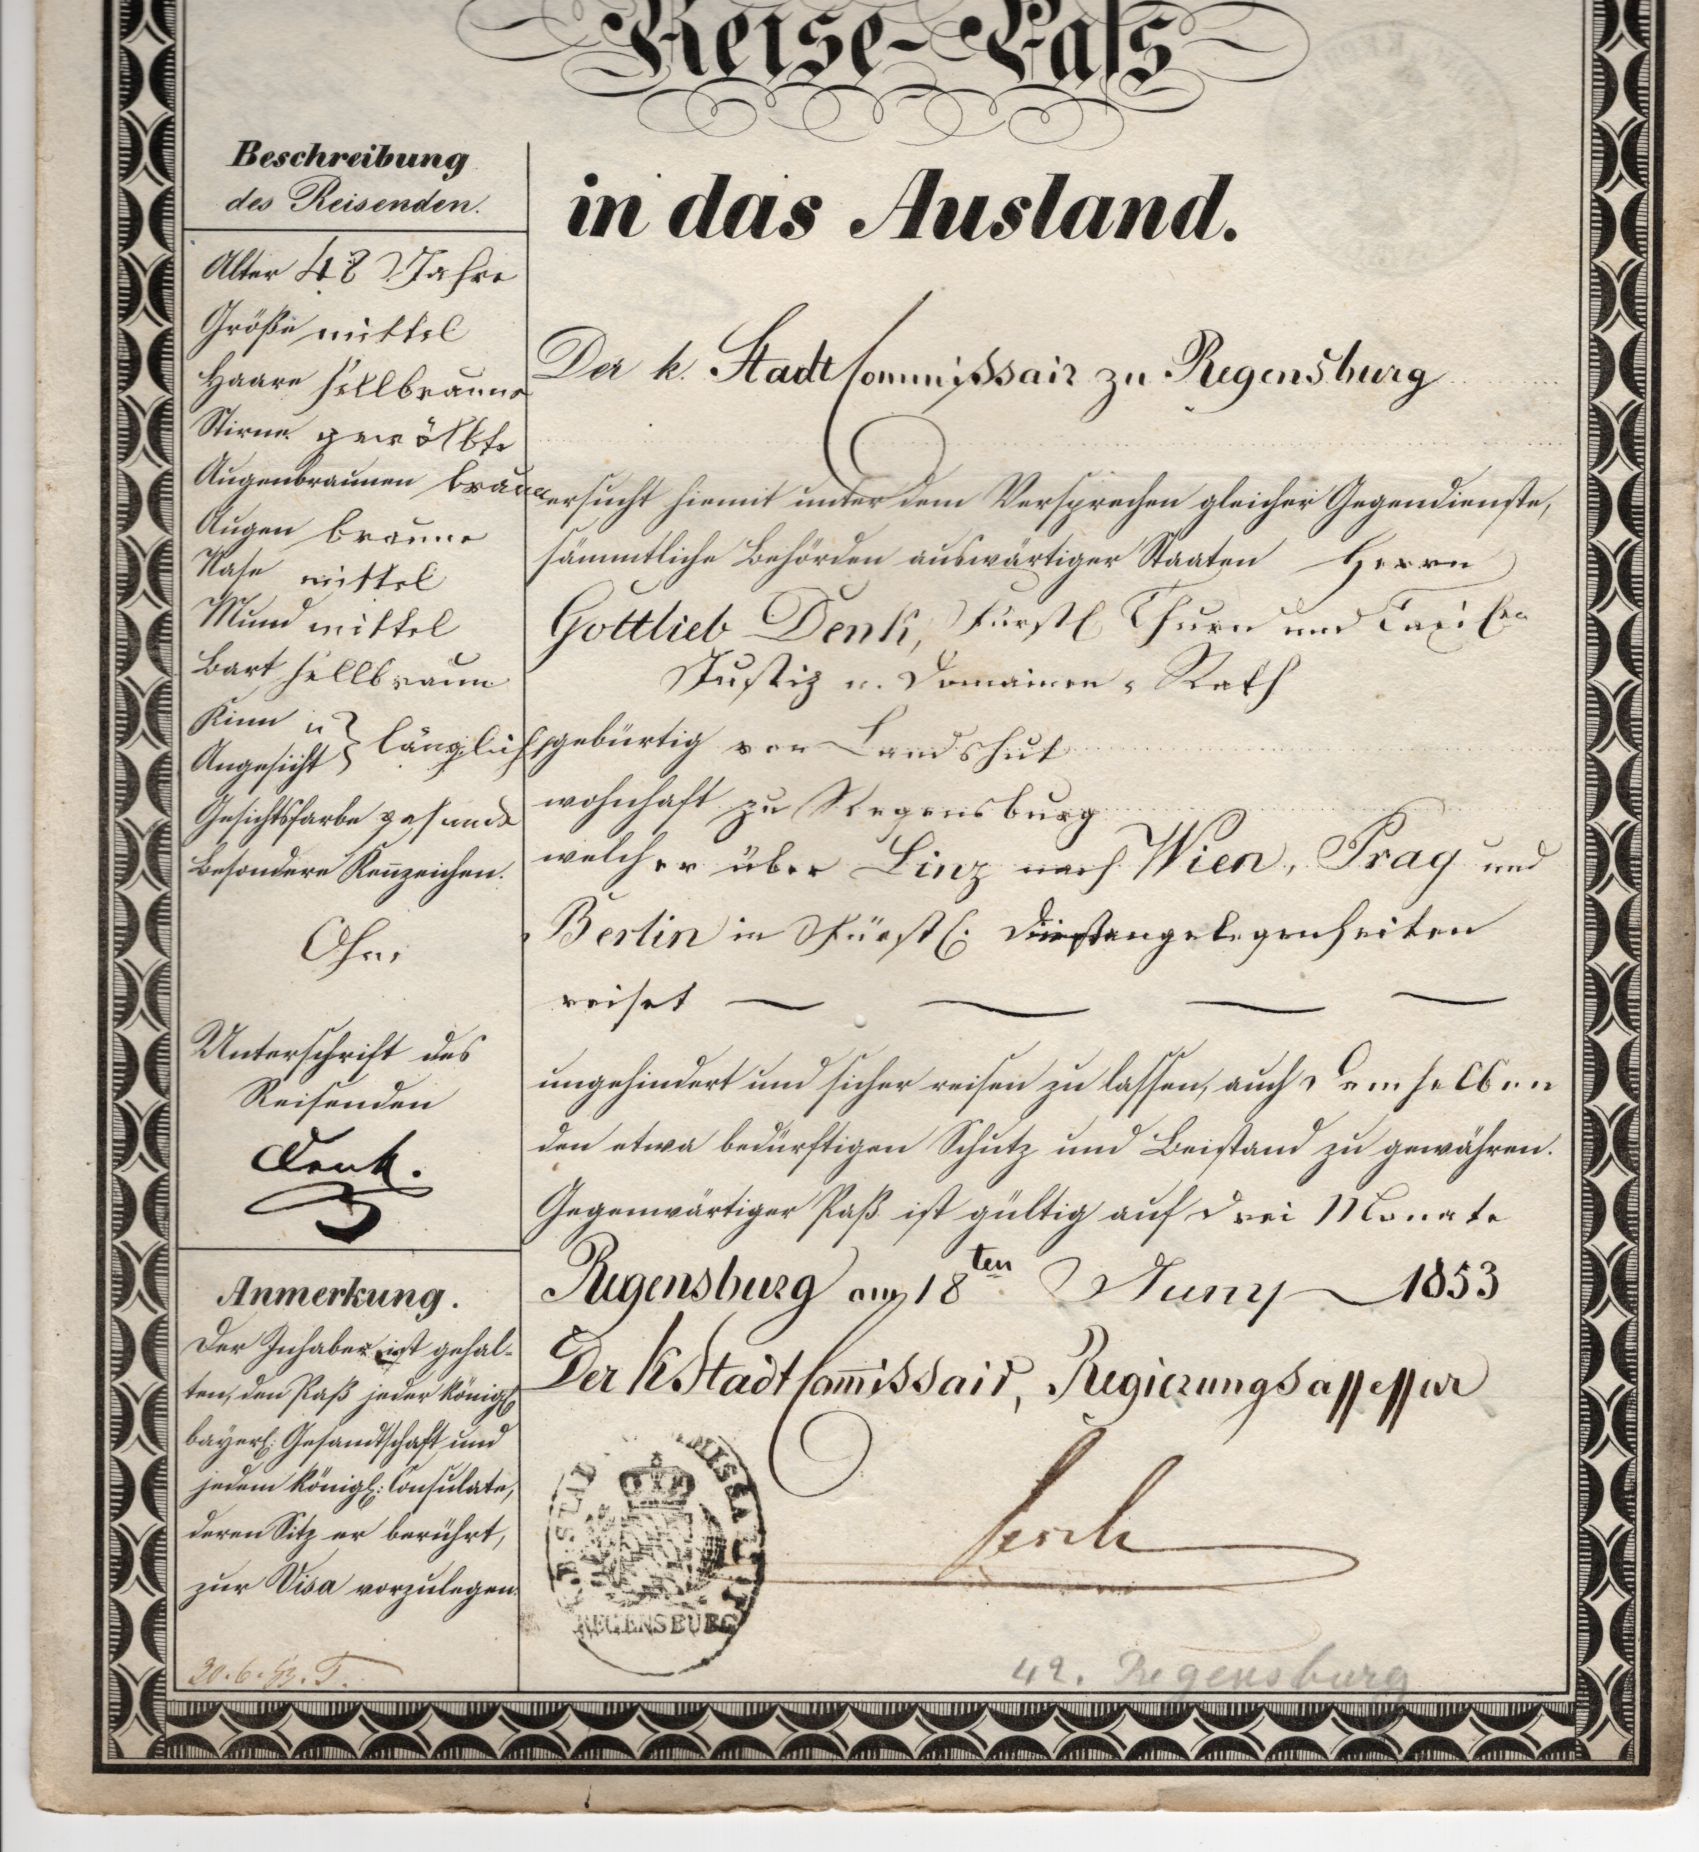 Reise-Paß
in das Ausland.
Beschreibung
des Reisenden.
Alter 48 Jahre
Größe mittel
Haare hellbraune
Stirne gewölbte
Augenbraunen braune
Augen braune
Nase mittel
Mund mittel
Bart hellbraun
Kinn u
Angesicht } länglich
Gesichtsfarbe gesunde
Besondere Kennzeichen.
Ohne
Unterschrift des
Reisenden
Denk.
Anmerkung.
Der Inhaber ist gehal-
ten, den Paß jeder königl:
bayerl: Gesandtschaft und
jedem königl: Consulate,
deren Sitz er berührt,
zur Visa vorzulegen.
Der k. Stadt Commissair zu Regensburg
ersucht hiemit unter dem Versprechen gleicher Gegendienste,
sämmtliche Behörden auswärtiger Staaten Herrn
Gottlieb Denk, Fürstl Thurn und Taxischen
Justiz u. Domainen-Rath
gebürtig von Landshut
wohnhaft zu Regensburg
welcher über Linz nach Wien, Prag und
Berlin in Fürstl: Dienstangelegenheiten
reiset
ungehindert und sicher reisen zu lassen, auch demselben
den etwa bedürftigen Schutz und Beistand zu gewähren.
Gegenwärtiger Paß ist gültig auf drei Monate
Regensburg am 18ten Juny 1853
Der k Stadt Com̅issair, Regierungsassessor
REGENSBURG
42. Regensburg